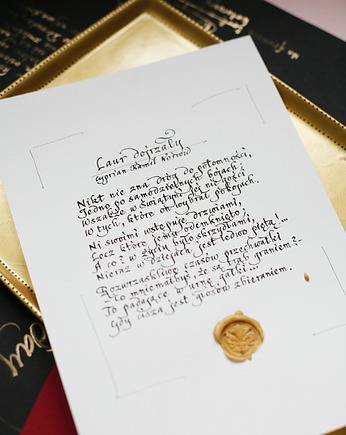 Laur dojrzały
Cyprian Kamil Norwid
Nikt nie zna dróg do potomności,
Jedno po samodzielnych bojach;
Wszakże w Świątyni Jej nie gości
W tych, które on wybrał, pokojach.
Ni swoimi wstępuje drzwiami,
Lecz które jemu odemknięto,
A co? w życiu było skrzydłami,
Nieraz w dziejach jest ledwo piętą!...
Rozwrzaskliwe czasów przechwałki,
Co mniemałbyś, że są trąb graniem?-
To padające w urnę gałki...
Gdy cisza jest głosów zbieraniem.
Day